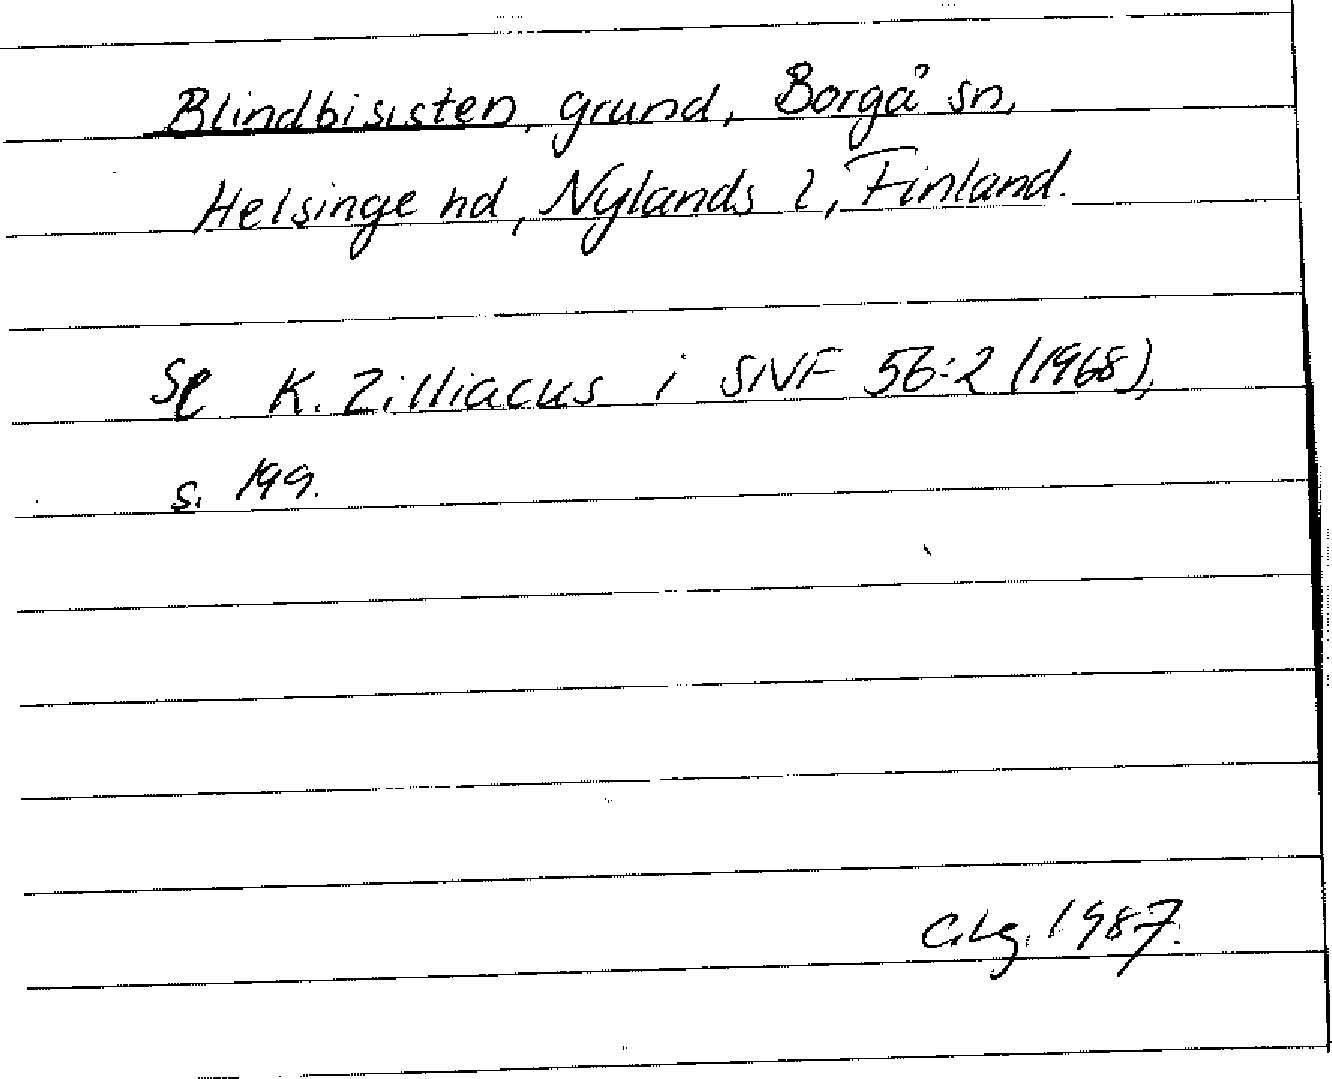 Blindbisisten, grund, Borgå sn,
Helsinge hd, Nylands l, Finland.
Se K. Zilliacus i SNF 56:2 (1968),
s. 199.
C.Lg. 1987.